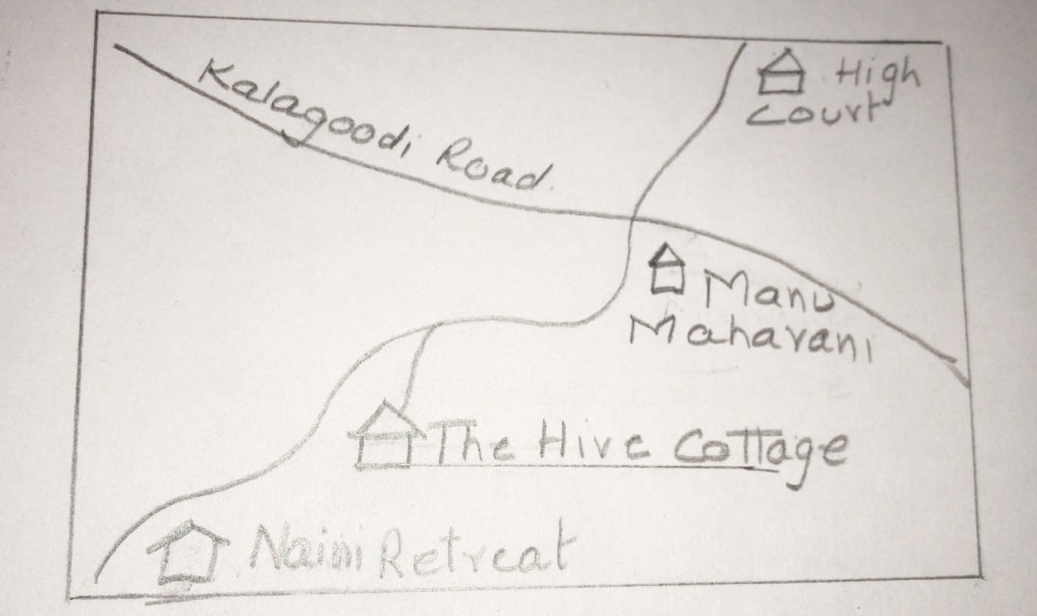 Kalagoodi Road.
High
Court
Manu
Maharani
The Hive Cottage
Naini Retreat